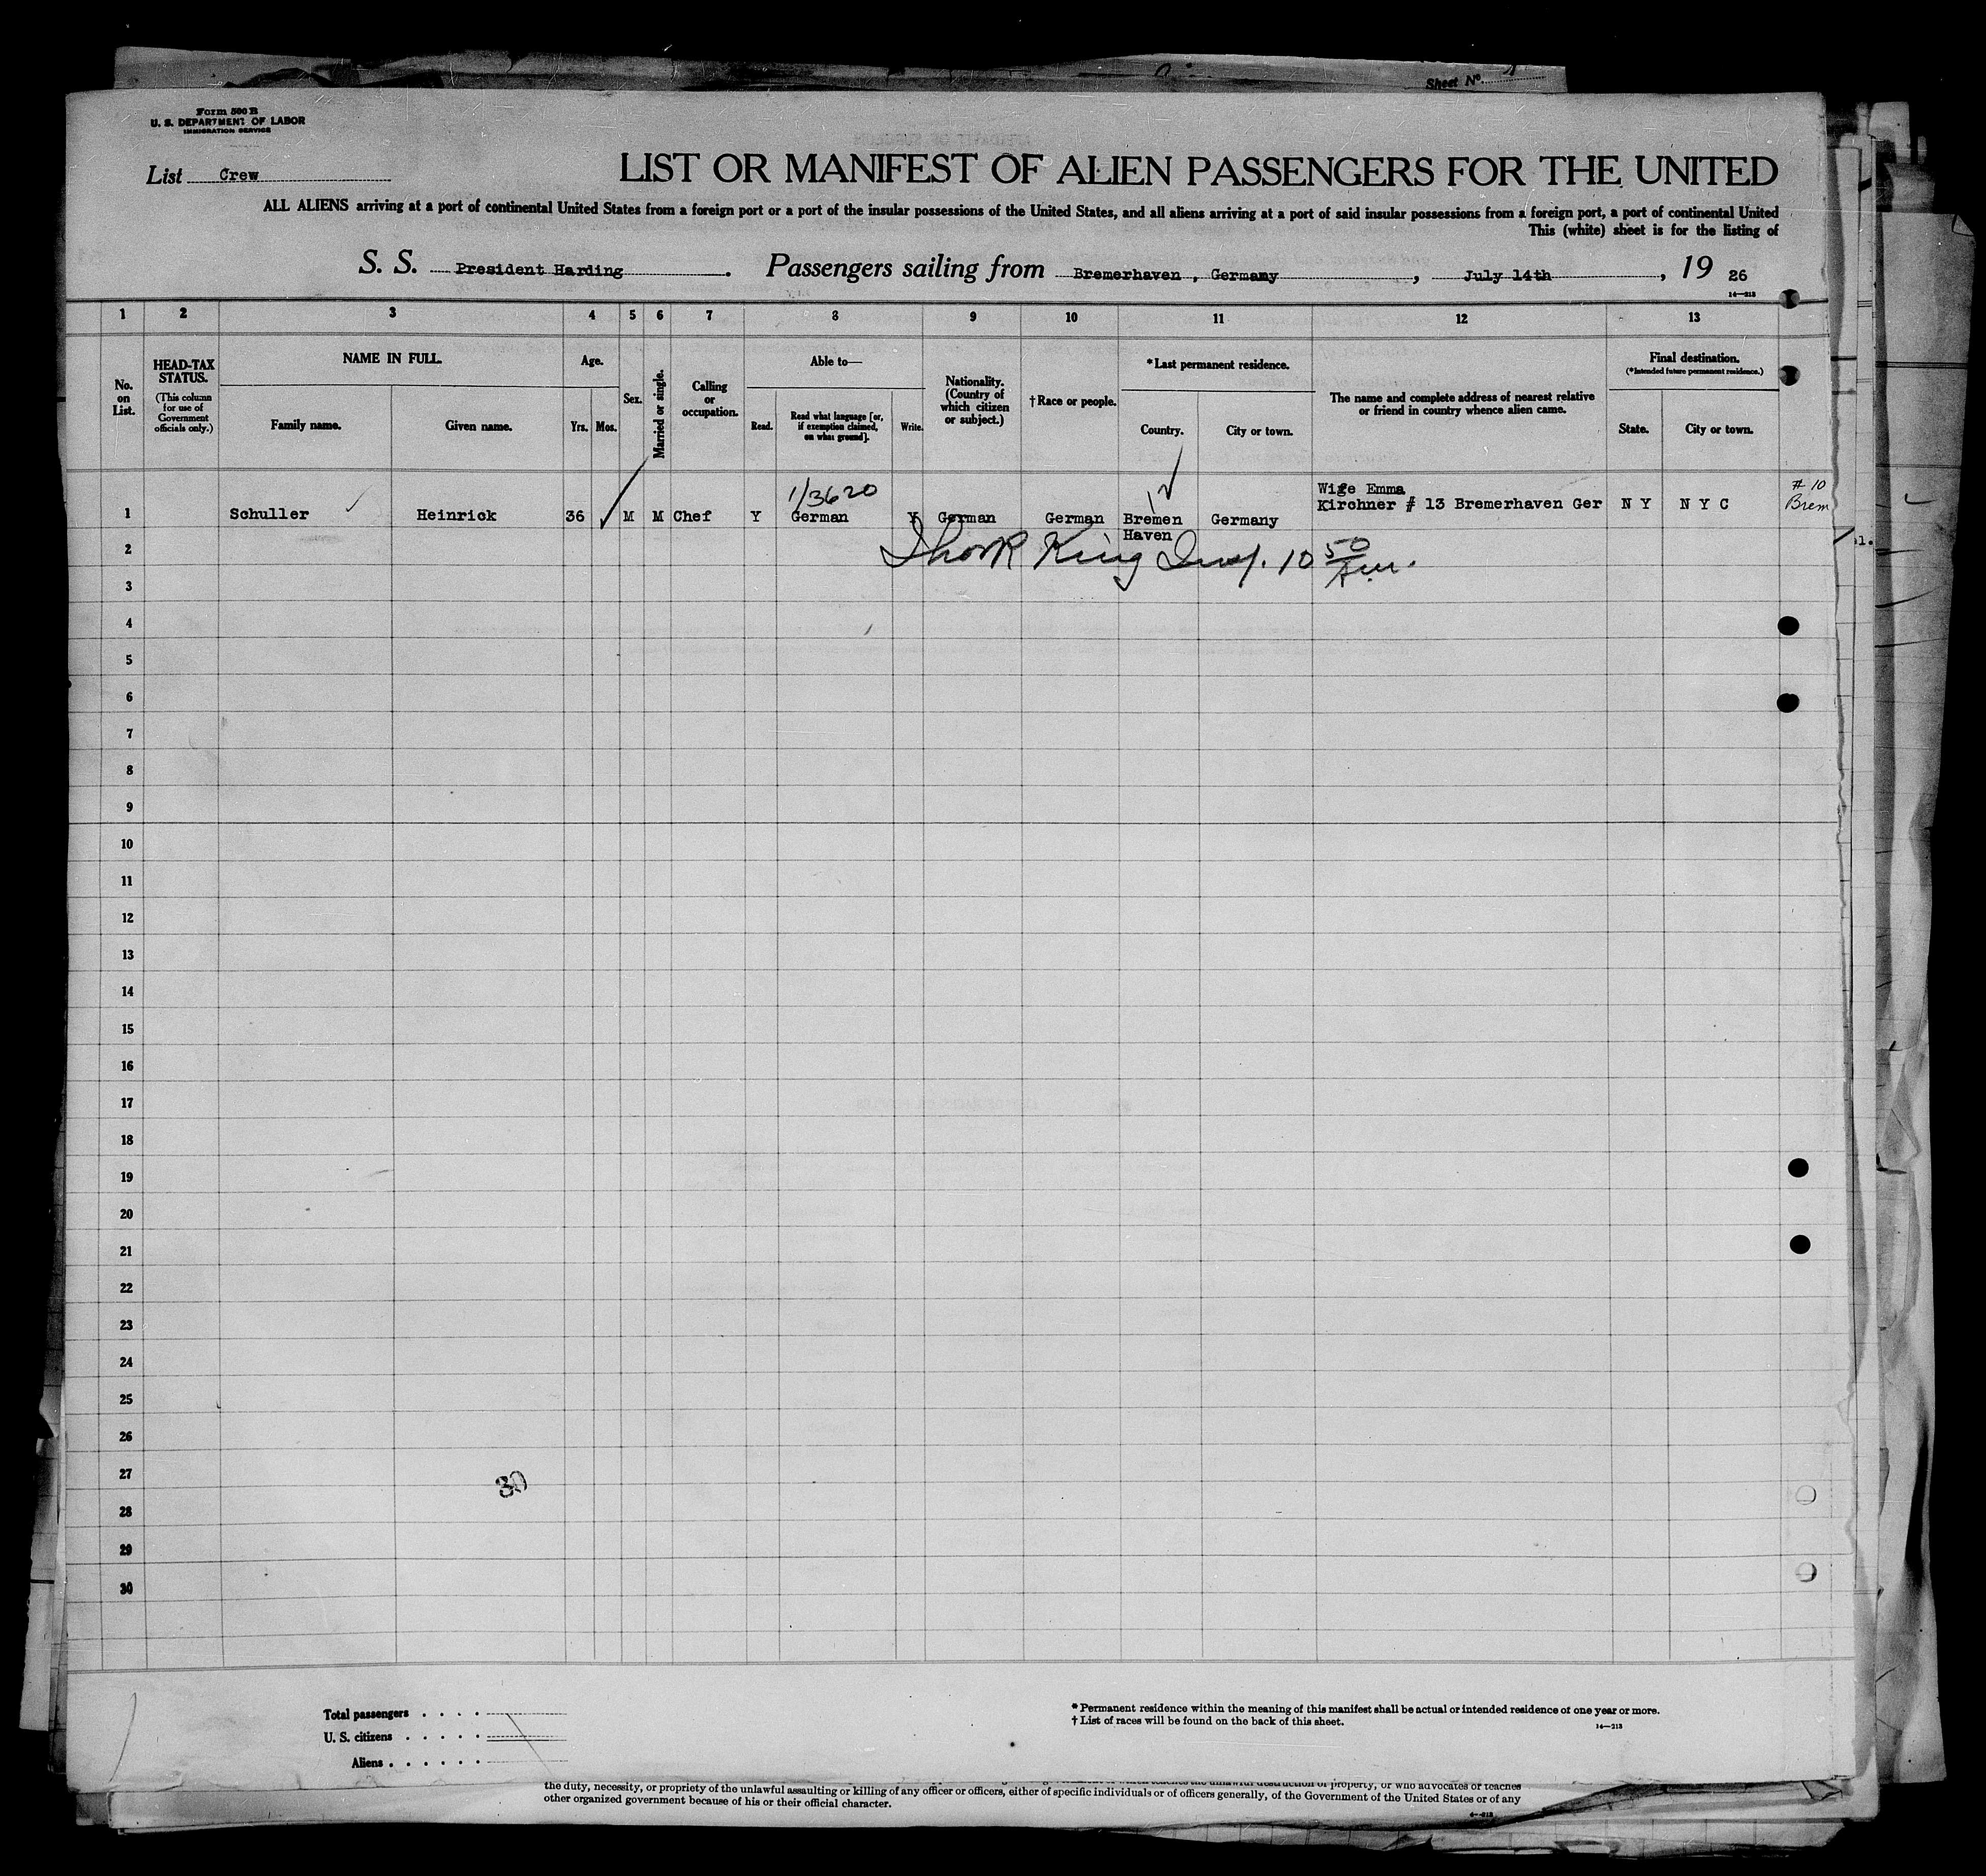 Sheet No.
Form 500 B
U. S. DEPARTMENT OF LABOR
IMMIGRATION SERVICE
List Crew
LIST OR MANIFEST OF ALIEN PASSENGERS FOR THE UNITED
ALL ALIENS arriving at a port of continental United States from a foreign port or a port of the insular possessions of the United States, and all aliens arriving at a port of said insular possessions from a foreign port, a port of continental United
This (white) sheet is for the listing of
S. S. President Harding . Passengers sailing from Bremerhaven , Germany , July 14th , 19 26
14—213
1 2 3 4 5 6 7 8 9 10 11 12 13
No. on List.
HEAD-TAX STATUS.
(This column for use of Government officials only.)
NAME IN FULL.
Family name. Given name.
Age.
Yrs. Mos.
Sex.
Married or single.
Calling or occupation.
Able to—
Read. Read what language [or, if exemption claimed, on what ground]. Write.
Nationality. (Country of which citizen or subject.)
†Race or people.
*Last permanent residence.
Country. City or town.
The name and complete address of nearest relative or friend in country whence alien came.
Final destination.
(*Intended future permanent residence.)
State. City or town.
1/3620
# 10
Brem
Wige Emma
1 Schuller Heinrick 36 M M Chef Y German Y German German Bremen Germany Kirchner # 13 Bremerhaven Ger N Y N Y C
Haven
King Insp. 10 50 Am.
2
3
4
5
6
7
8
9
10
11
12
13
14
15
16
17
18
19
20
21
22
23
24
25
26
27
30
28
29
30
Total passengers . . . .
U. S. citizens . . . . .
Aliens . . . . . .
* Permanent residence within the meaning of this manifest shall be actual or intended residence of one year or more.
† List of races will be found on the back of this sheet.
14—213
the duty, necessity, or propriety of the unlawful assaulting or killing of any officer or officers, either of specific individuals or of officers generally, of the Government of the United States or of any
other organized government because of his or their official character.